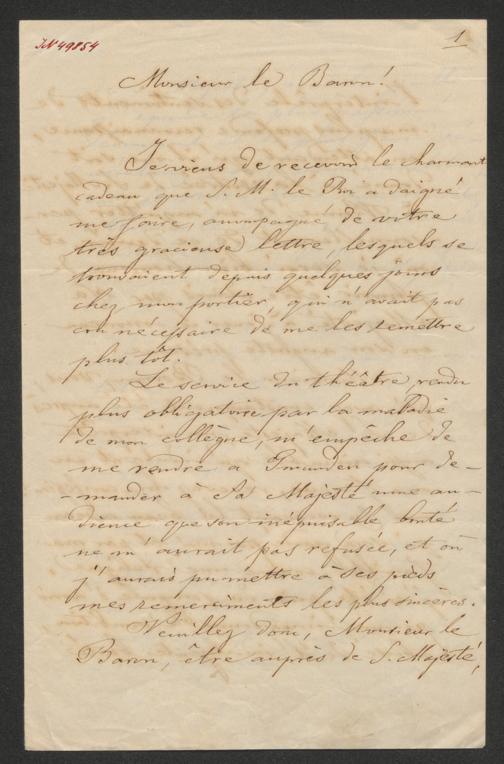 IN 49854
1
Monsieur le Baron!
Je viens de recevoir le charmant
cadeau que S. M. le Roi a daigné
me faire, accompagné de votre
très gracieuse lettre, lesquels se
trouvaient depuis quelques jours
chez mon portier, qui n'avait pas
cru nécessaire de me les remettre
plus tôt.
Le service du théâtre, rendu
plus obligatoire par la maladie
de mon collègue, m'empêche de
me rendre a Gmunden pour de-
-mander à Sa Majesté une au-
dience que son inépuisable bonté
ne m'aurait pas refusée, et où
j'aurais pu mettre à ses pieds
mes remerciments les plus sincères.
Veuillez donc, Monsieur le
Baron, être auprès de S. Majesté,